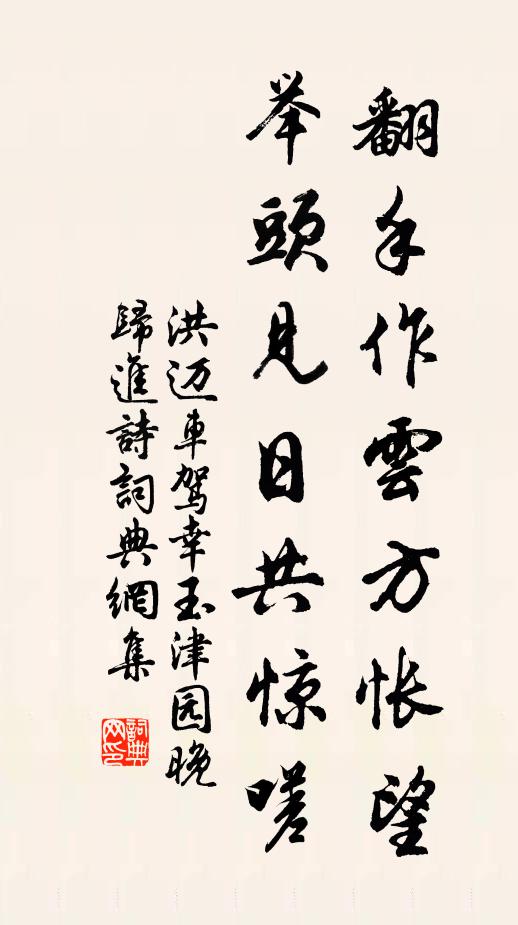 翻手作雲方怅望
举頭見日共惊嗟
洪迈車駕幸玉津园晚
歸進詩詞典網集
詞典网印